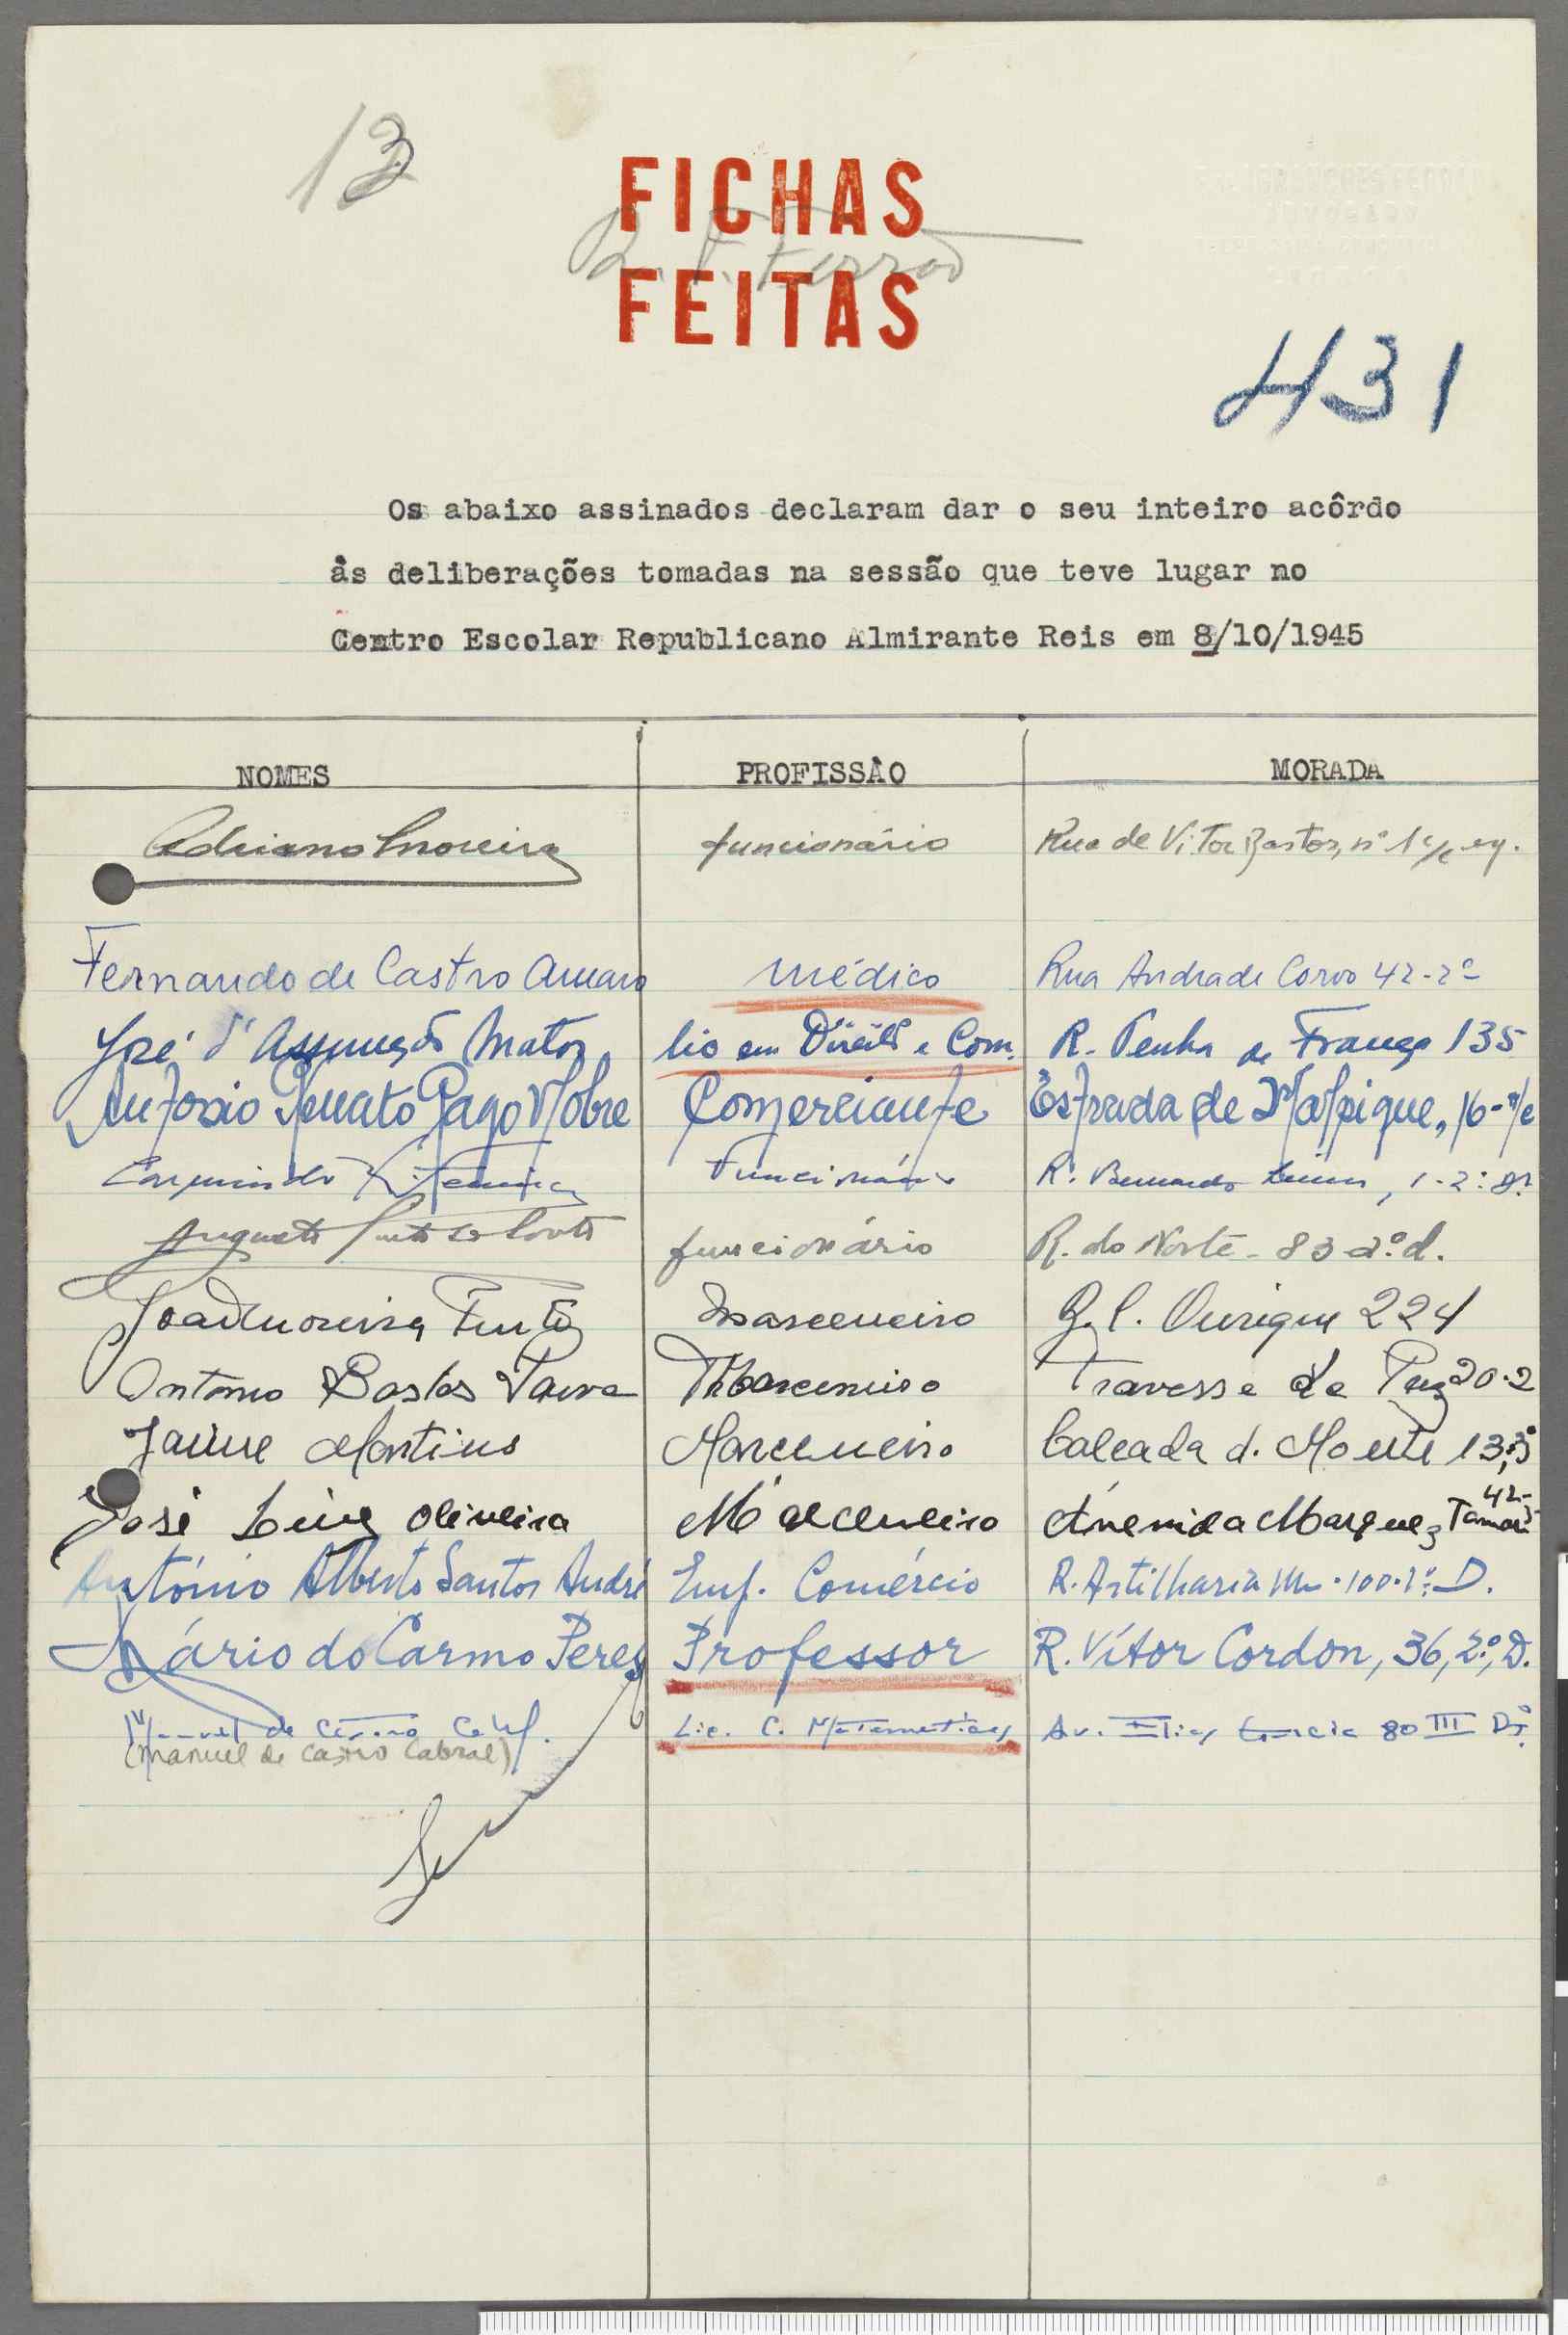 13
FICHAS
FEITAS
431
Os abaixo assinados declaram dar o seu inteiro acôrdo
às deliberações tomadas na sessão que teve lugar no
Centro Escolar Republicano Almirante Reis em 8/10/1945
NOMES PROFISSÃO MORADA
Adriano Moreira funcionário Rua de Vitor Bastos, nº 1 r/c eq.
Fernando de Castro Amaro médico Rua Andrade Corvo 42-2º
José d'Assunção Matos lic em Direito e Com. R. Penha de França 135
António Renato Gago Nobre Comerciante Estrada de Malpique, 16-r/c
Funcionário R. Bernardo 1-2º
Augusto funcionário R. do Norte - 83 2º d.
João Moreira Marceneiro Ourique 224
Antonio Bastos Paiva Marceneiro Travessa da 20-2
Jaime Martins Marceneiro Calcada d. Monte 13,3º
José Luiz Oliveira Marceneiro Avenida Marquez Tamar 42-
António Alberto Santos André Emp. Comércio R. Artilharia Um-100-1º D.
Mário do Carmo Peres Professor R. Vítor Cordon, 36, 2º, D.
Manuel de Castro Cabral Lic. C. Matematicas Av. Elias Garcia 80 III Dº
(Manuel de Castro Cabral)